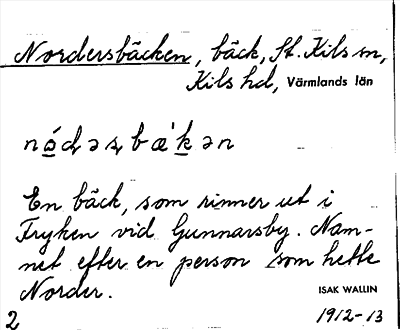 Nordersbäcken, bäck, St. Kils sn,
Kils hd, Värmlands län
En bäck, som rinner ut i
Fryken vid Gunnarsby. Nam-
net efter en person som hette
Norder.
ISAK WALLIN
2 1912-13